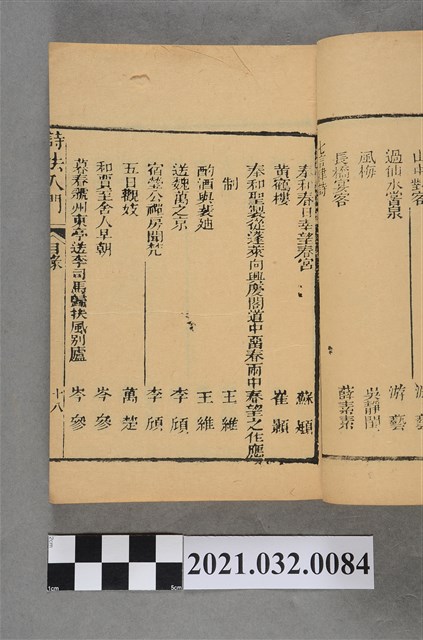 過仙水
風梅 吳靜閨
長橋宴客 薛素素
奉和春日幸望春宮 蘇頲
黄鶴樓 崔顥
奉和聖製從蓬萊向興慶閣道中畱春雨中春望之作應
制 王維
酌酒與裴迪 王維
送魏萬之京 李頎
宿瑩公禪房聞梵 李頎
五日觀妓 萬楚
和賈至舍人早朝 岑參
暮春虢州東亭送李司馬歸扶風別廬 岑參
詩法入門 目錄 十八
2021.032.0084
1cm
5cm